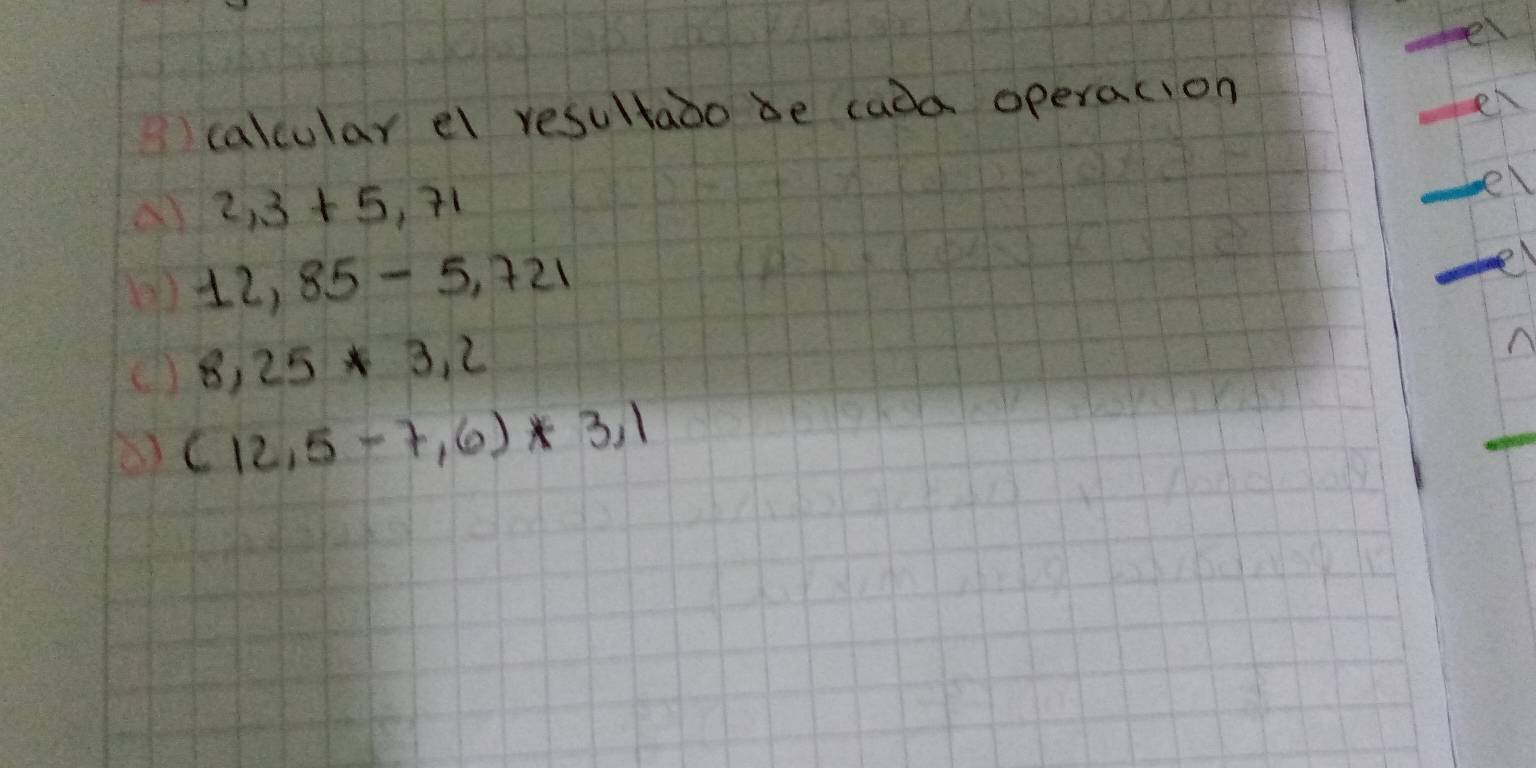 8) calcular el resultado de cada operacion
a) 2,3 + 5,71
b) 12,85 - 5,721
c) 8,25 * 3,2
d) (12,5 - 7,6) * 3,1
el
el
el
el